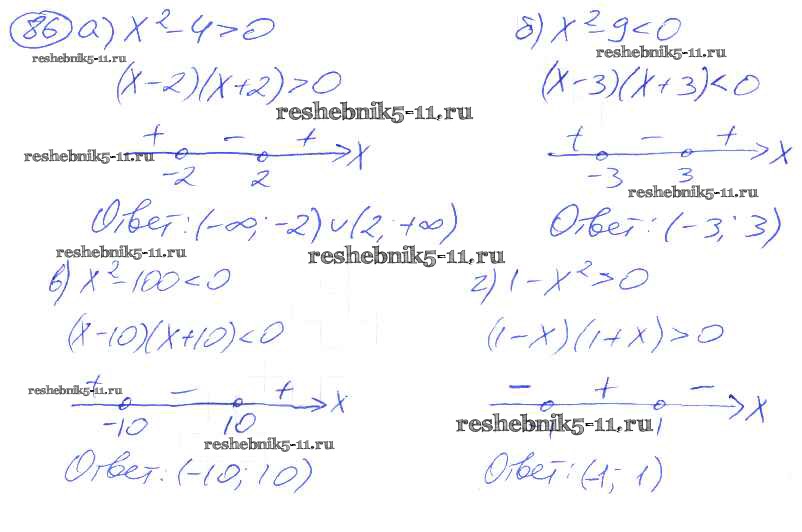 86 а) x²-4>0
reshebnik5-11.ru
(x-2)(x+2)>0
reshebnik5-11.ru
+ - +
reshebnik5-11.ru
-2 2 x
Ответ: (-∞; -2)∪(2; +∞)
reshebnik5-11.ru
б) x²-9<0
reshebnik5-11.ru
(x-3)(x+3)<0
+ - +
-3 3 x
reshebnik5-11.ru
Ответ: (-3; 3)
reshebnik5-11.ru
в) x²-100<0
(x-10)(x+10)<0
+ - +
reshebnik5-11.ru
-10 10 x
reshebnik5-11.ru
Ответ: (-10; 10)
г) 1-x²>0
(1-x)(1+x)>0
- + -
reshebnik5-11.ru
1 x
Ответ: (-1; 1)